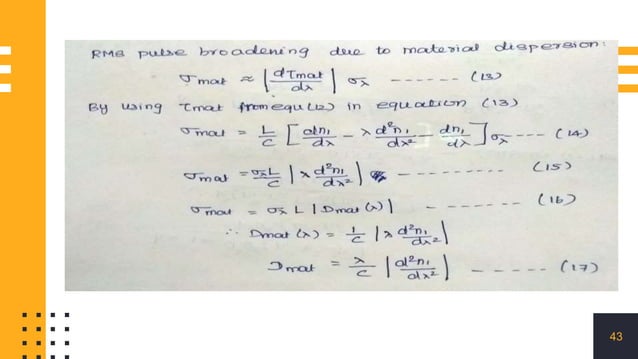 RMS pulse broadening due to material dispersion:
σmat ≈ |dτmat/dλ| σλ ------ (13)
By using τmat from equ(12) in equation (13)
σmat = L/C [dn₁/dλ - λ d²n₁/dλ² - dn₁/dλ] σλ --- (14)
σmat = σλL/C |λ d²n₁/dλ²| --------- (15)
σmat = σλ L |Dmat(λ)| ------ (16)
∴ Dmat(λ) = 1/C |λ d²n₁/dλ²|
Dmat = λ/C |d²n₁/dλ²| ----- (17)
43